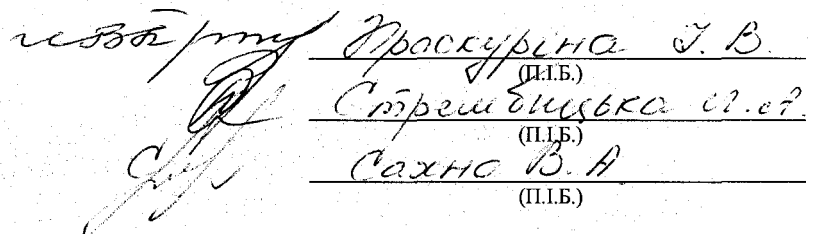 Проскуріна І. В.
(П.І.Б.)
Стрембицька
(П.І.Б.)
Сахно В. А
(П.І.Б.)